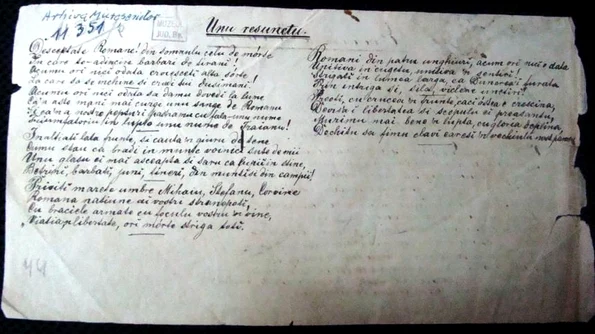 Arhiva Muresenilor
11 351
Unu resunetu.
Desceptate Romane! din somnulu celu de mórte
In care te-adincire barbari de tirani!
Acumu ori nici odata croiesceti alta sórte,
La care sa se inchine si crudii tui dusimani!
Acumu ori nici odata sa damu dovedi la lume
Ca'n aste mani mai curge unu sange de Romanu
Si ca'n a nostre pepturi pastramu cu fala-unu nume
Triumfatoriu in lupte unu nume de Traianu!
Inaltiati lata frunte, si cauta'n giuru de tene
Cumu stau ca bradi in munte voinici sute de mii
Unu glasu ei mai ascepta si saru ca lupii in stâne,
Betrani, barbati, juni, tineri, din munti si din campii!
Priviti marete umbre Mihaiu, Stefanu, Corvine
Romana natiune ai vostri stranepoti,
Cu braciele armate cu foculu vostru'n vine,
„Viatia'n libertate, ori mórte striga toti.
Romani din patru unghiuri, acum ori nici odata
Uniti-va in cugetu, uniti-va'n sentiri!
Strigati in lumea larga, ca Dunarea-i furata
Prin intriga si sila, viclene uneltiri!
Preoti, cu crucea'n frunte, caci óstea e crescina,
Devisa-i libertatea si scopulu ei preasantu,
Murimu mai bene'n lupta, cu gloria deplina,
Decâtu sa fimu sclavi earesi'n vechiulu nost pamentu
44